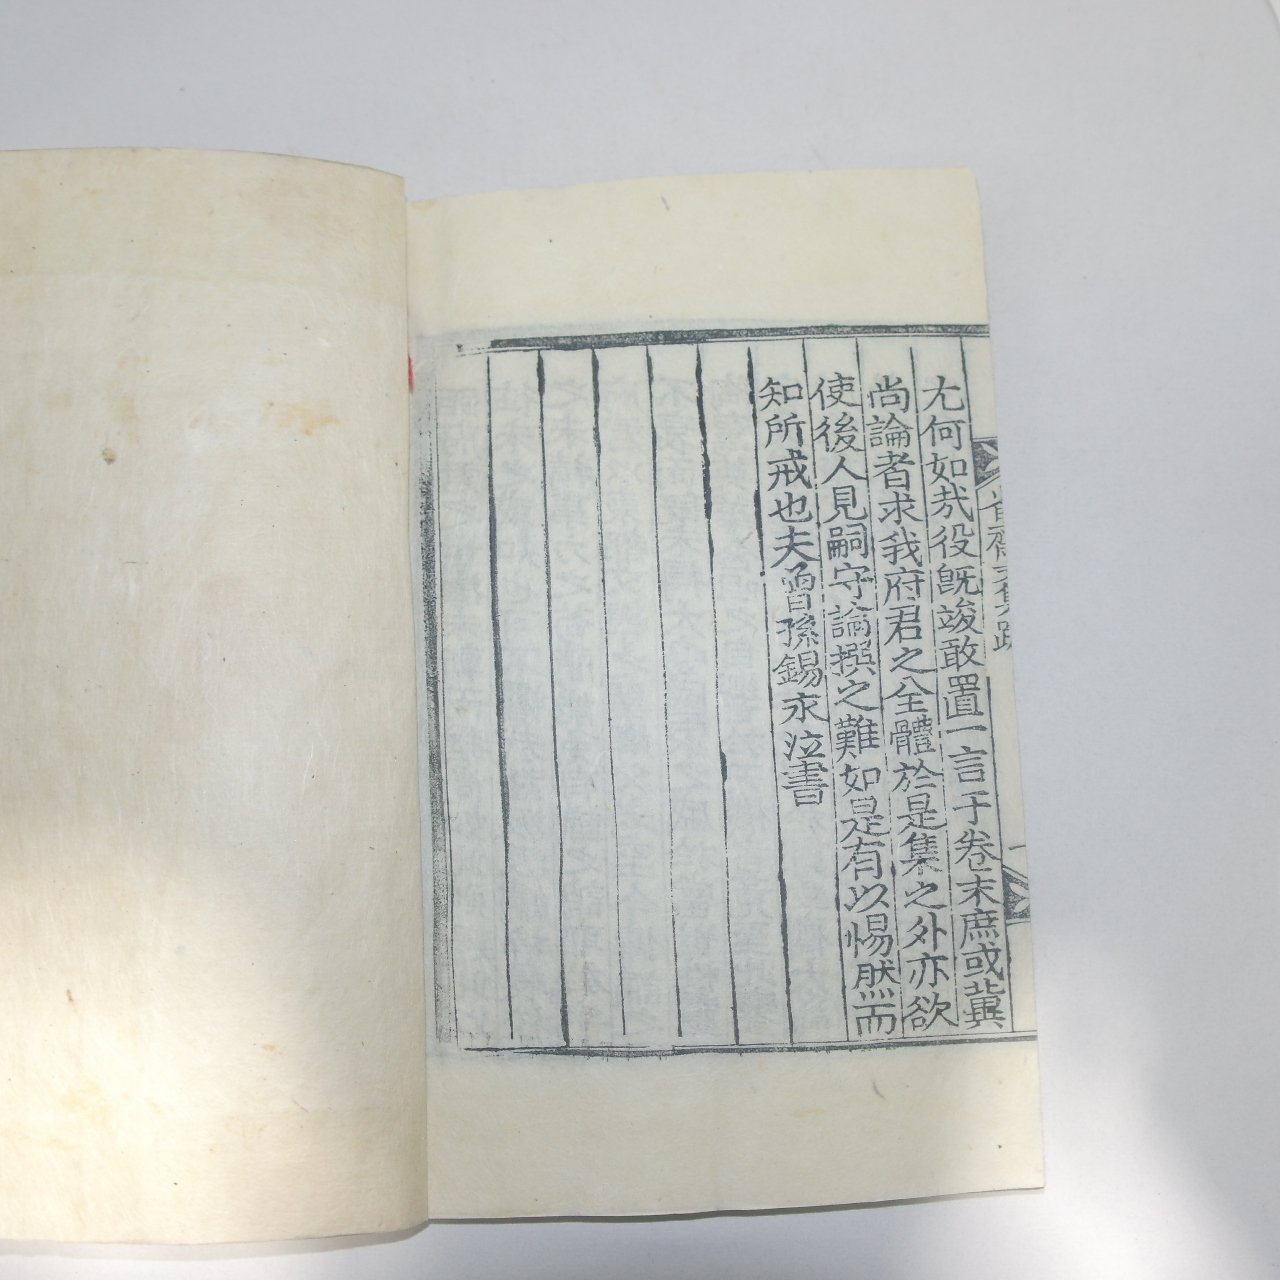 尤何如哉役旣竣敢置一言于卷末庶或冀
尚論者求我府君之全體於是集之外亦欲
使後人見嗣守論撰之難如是有以惕然而
知所戒也夫曾孫錫永泣書